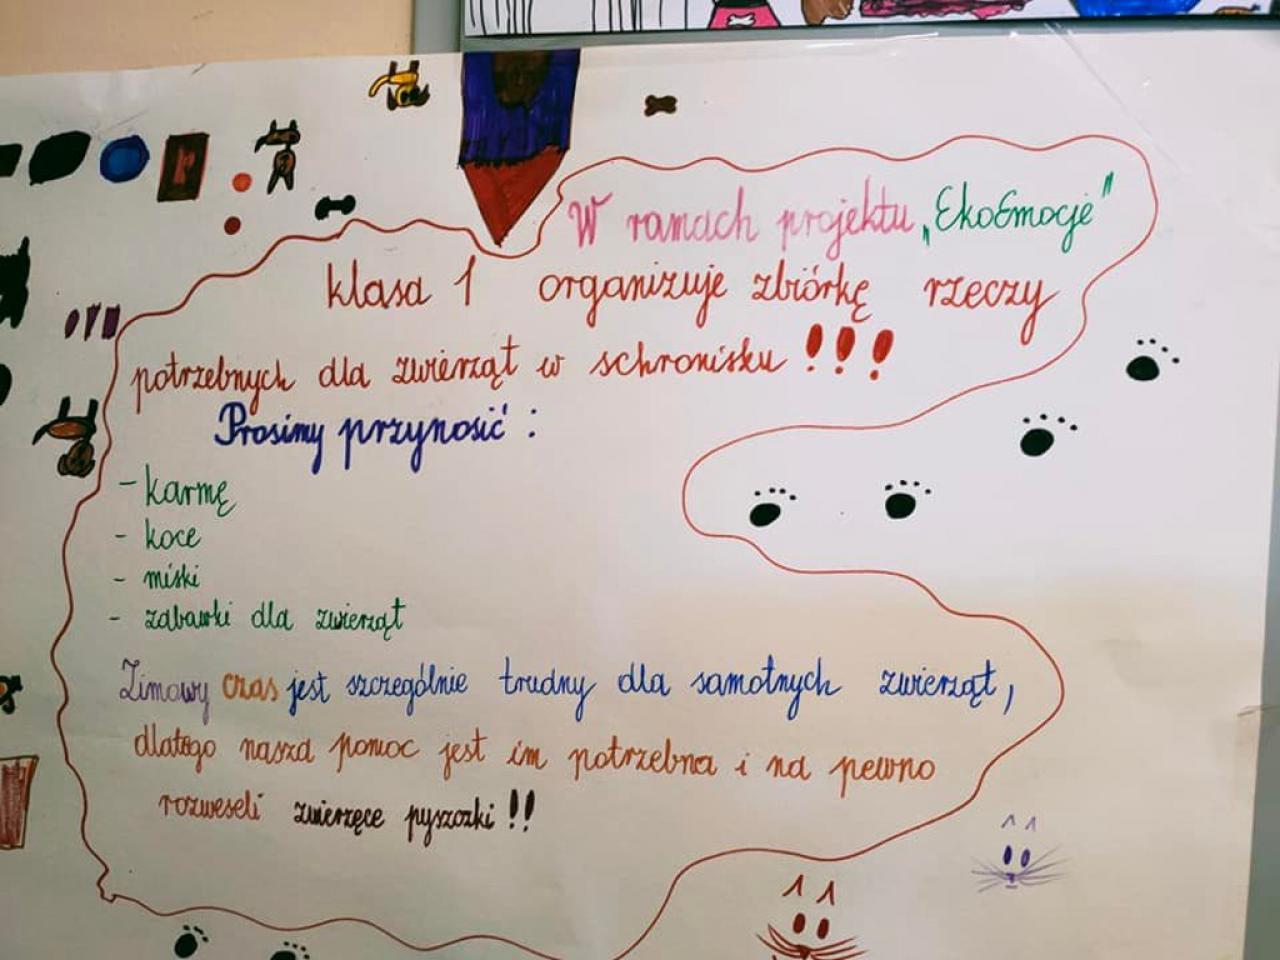 W ramach projektu „EkoEmocje"
klasa 1 organizuje zbiórkę rzeczy
potrzebnych dla zwierząt w schronisku !!!
Prosimy przynosić :
- karmę
- koce
- miski
- zabawki dla zwierząt
Zimowy czas jest szczególnie trudny dla samotnych zwierząt,
dlatego nasza pomoc jest im potrzebna i na pewno
rozweseli zwierzęce pyszczki !!